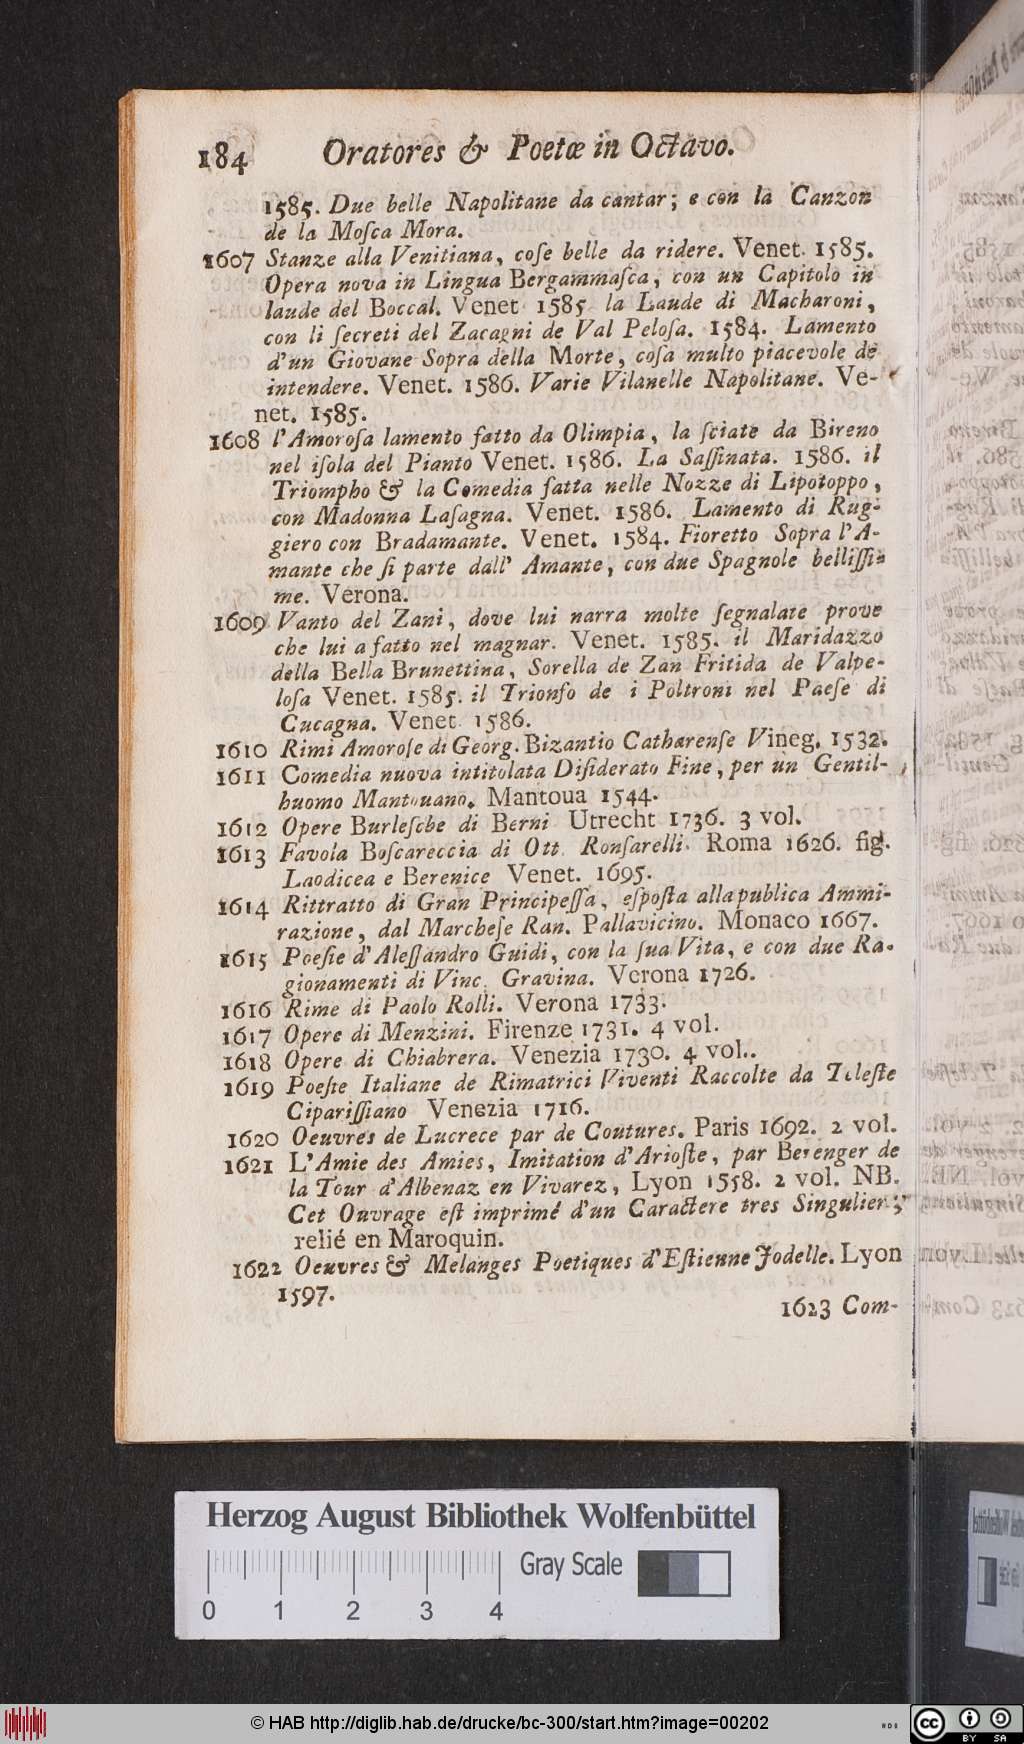 184 Oratores & Poetæ in Octavo.
1585. Due belle Napolitane da cantar; e con la Canzon
de la Moſca Mora.
1607 Stanze alla Venitiana, coſe belle da ridere. Venet. 1585.
Opera nova in Lingua Bergammaſca, con un Capitolo in
laude del Boccal. Venet 1585 la Laude di Macharoni,
con li ſecreti del Zacagni de Val Peloſa. 1584. Lamento
d'un Giovane Sopra della Morte, coſa multo piacevole de
intendere. Venet. 1586. Varie Vilanelle Napolitane. Ve-
net. 1585.
1608 l'Amoroſa lamento fatto da Olimpia, la ſciate da Bireno
nel iſola del Pianto Venet. 1586. La Saſſinata. 1586. il
Triompho & la Comedia fatta nelle Nozze di Lipotoppo,
con Madonna Laſagna. Venet. 1586. Lamento di Rug-
giero con Bradamante. Venet. 1584. Fioretto Sopra l'A-
mante che ſi parte dall' Amante, con due Spagnole belliſſi-
me. Verona.
1609 Vanto del Zani, dove lui narra molte ſegnalate prove
che lui a fatto nel magnar. Venet. 1585. il Maridazzo
della Bella Brunettina, Sorella de Zan Fritida de Valpe-
loſa Venet. 1585. il Trionfo de i Poltroni nel Paeſe di
Cucagna. Venet 1586.
1610 Rimi Amoroſe di Georg. Bizantio Catharenſe Vineg. 1532.
1611 Comedia nuova intitolata Diſiderato Fine, per un Gentil-
huomo Mantouano. Mantoua 1544.
1612 Opere Burleſche di Berni Utrecht 1736. 3 vol.
1613 Favola Boſcareccia di Ott. Ronſarelli. Roma 1626. fig.
Laodicea e Berenice Venet. 1695.
1614 Rittratto di Gran Principeſſa, eſpoſta alla publica Ammi-
razione, dal Marcheſe Ran. Pallavicino. Monaco 1667.
1615 Poeſie d'Aleſſandro Guidi, con la ſua Vita, e con due Ra-
gionamenti di Vinc. Gravina. Verona 1726.
1616 Rime di Paolo Rolli. Verona 1733.
1617 Opere di Menzini. Firenze 1731. 4 vol.
1618 Opere di Chiabrera. Venezia 1730. 4 vol..
1619 Poeſie Italiane de Rimatrici Viventi Raccolte da Teleſte
Cipariſſiano Venezia 1716.
1620 Oeuvres de Lucrece par de Coutures. Paris 1692. 2 vol.
1621 L'Amie des Amies, Imitation d'Arioſte, par Berenger de
la Tour d'Albenaz en Vivarez, Lyon 1558. 2 vol. NB.
Cet Ouvrage eſt imprimé d'un Caractere tres Singulier;
relié en Maroquin.
1622 Oeuvres & Melanges Poetiques d'Eſtienne Jodelle. Lyon
1597.
1623 Com-
Herzog August Bibliothek Wolfenbüttel
Gray Scale
0 1 2 3 4
© HAB http://diglib.hab.de/drucke/bc-300/start.htm?image=00202
cc BY SA